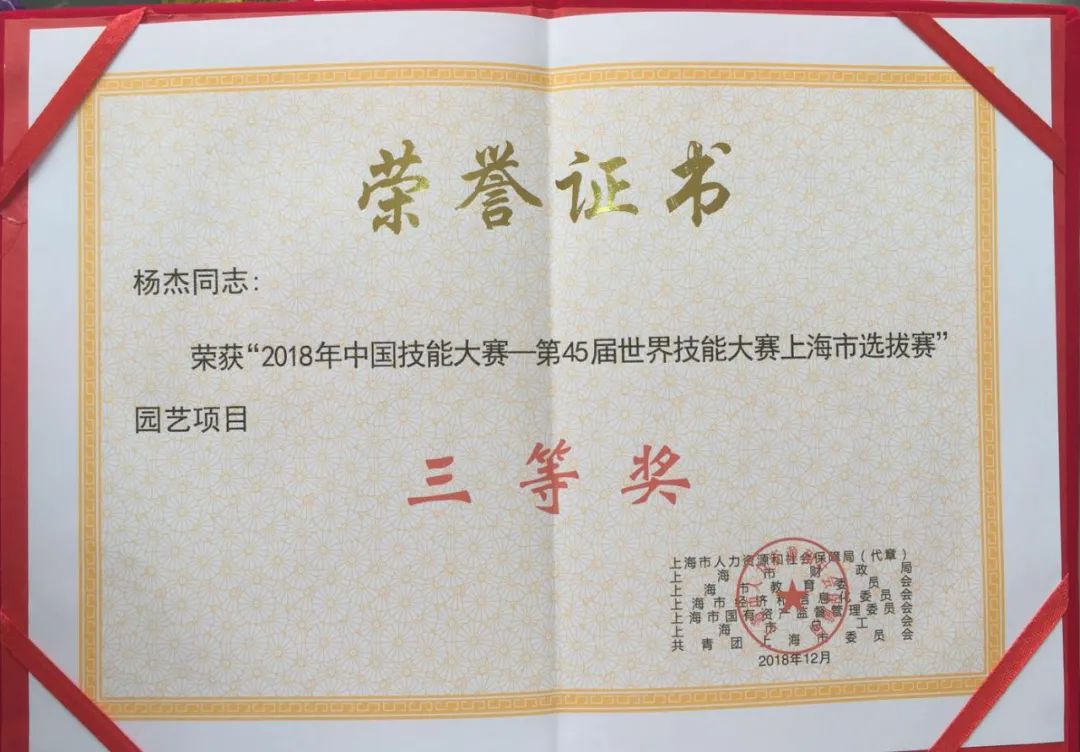 荣誉证书
杨杰同志：
荣获“2018年中国技能大赛—第45届世界技能大赛上海市选拔赛”
园艺项目
三等奖
上海市人力资源和社会保障局（代章）
上海市财政局
上海市教育委员会
上海市经济和信息化委员会
上海市国有资产监督管理委员会
上海市总工会
共青团上海市委员会
2018年12月